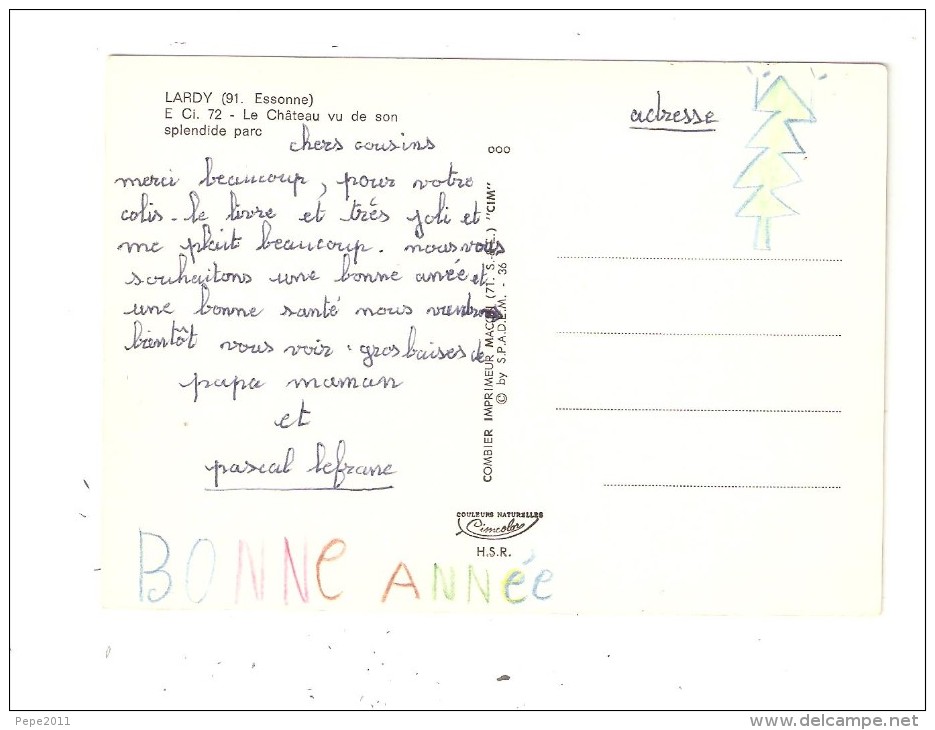 LARDY (91. Essonne)
E Ci. 72 - Le Château vu de son
splendide parc
chers cousins
merci beaucoup, pour votre
colis. le livre et très joli et
me plait beaucoup. nous vous
souhaitons une bonne anée et
une bonne santé nous
bientôt vous voir. gros baises de
papa maman
et
pascal lefranc
BONNE ANNÉE
COMBIER IMPRIMEUR MACON (71. S.-&-L.) "CIM"
© by S.P.A.D.E.M. - 36
COULEURS NATURELLES
Cimcolor
H.S.R.
adresse
Pepe2011
www.delcampe.net